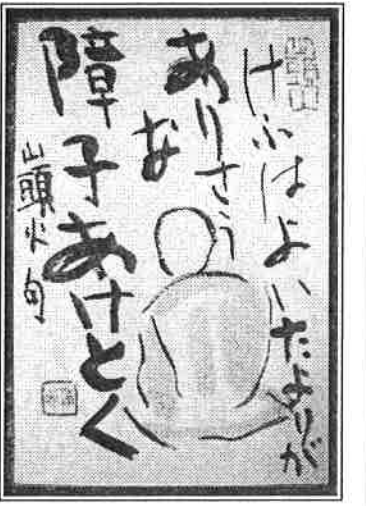 けふはよいたよりが
ありさう
な
障子あけとく
山頭火句